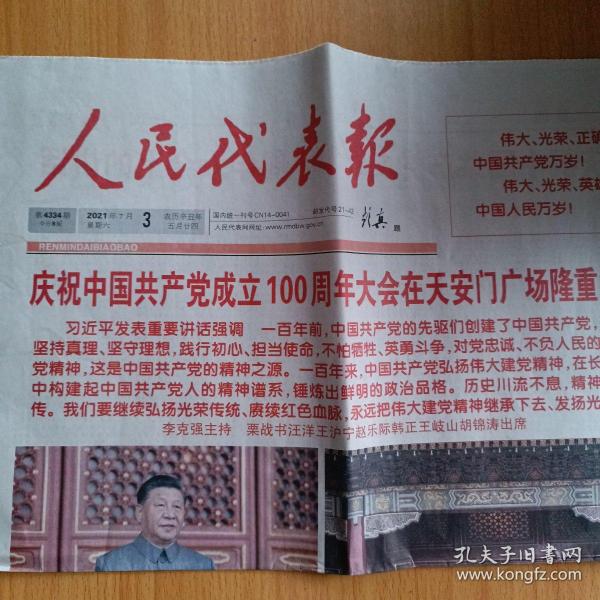 人民代表報
伟大、光荣、正确
中国共产党万岁！
伟大、光荣、英雄
中国人民万岁！
第4334期
今日8版
2021年7月
星期六
3
农历辛丑年
五月廿四
国内统一刊号CN14-0041
邮发代号21-42
人民代表网网址:www.rmdbw.gov.cn
彭真
题
RENMINDAIBIAOBAO
庆祝中国共产党成立100周年大会在天安门广场隆重
习近平发表重要讲话强调 一百年前，中国共产党的先驱们创建了中国共产党，
坚持真理、坚守理想，践行初心、担当使命，不怕牺牲、英勇斗争，对党忠诚、不负人民的
党精神，这是中国共产党的精神之源。一百年来，中国共产党弘扬伟大建党精神，在长
中构建起中国共产党人的精神谱系，锤炼出鲜明的政治品格。历史川流不息，精神
传。我们要继续弘扬光荣传统、赓续红色血脉，永远把伟大建党精神继承下去、发扬光
李克强主持 栗战书汪洋王沪宁赵乐际韩正王岐山胡锦涛出席
孔夫子旧书网
www.kongfz.com